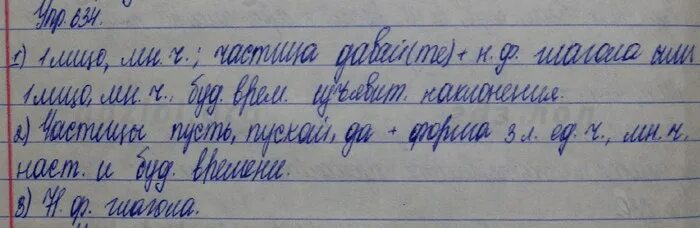 Упр. 634.
1) 1 лицо, мн. ч.; частица давай(те) + н. ф. глагола или
1 лицо, мн. ч. буд. врем. изъявит. наклонения.
2) Частицы пусть, пускай, да + форма 3 л. ед. ч., мн. ч.
наст. и буд. времени.
3) Н. ф. глагола.